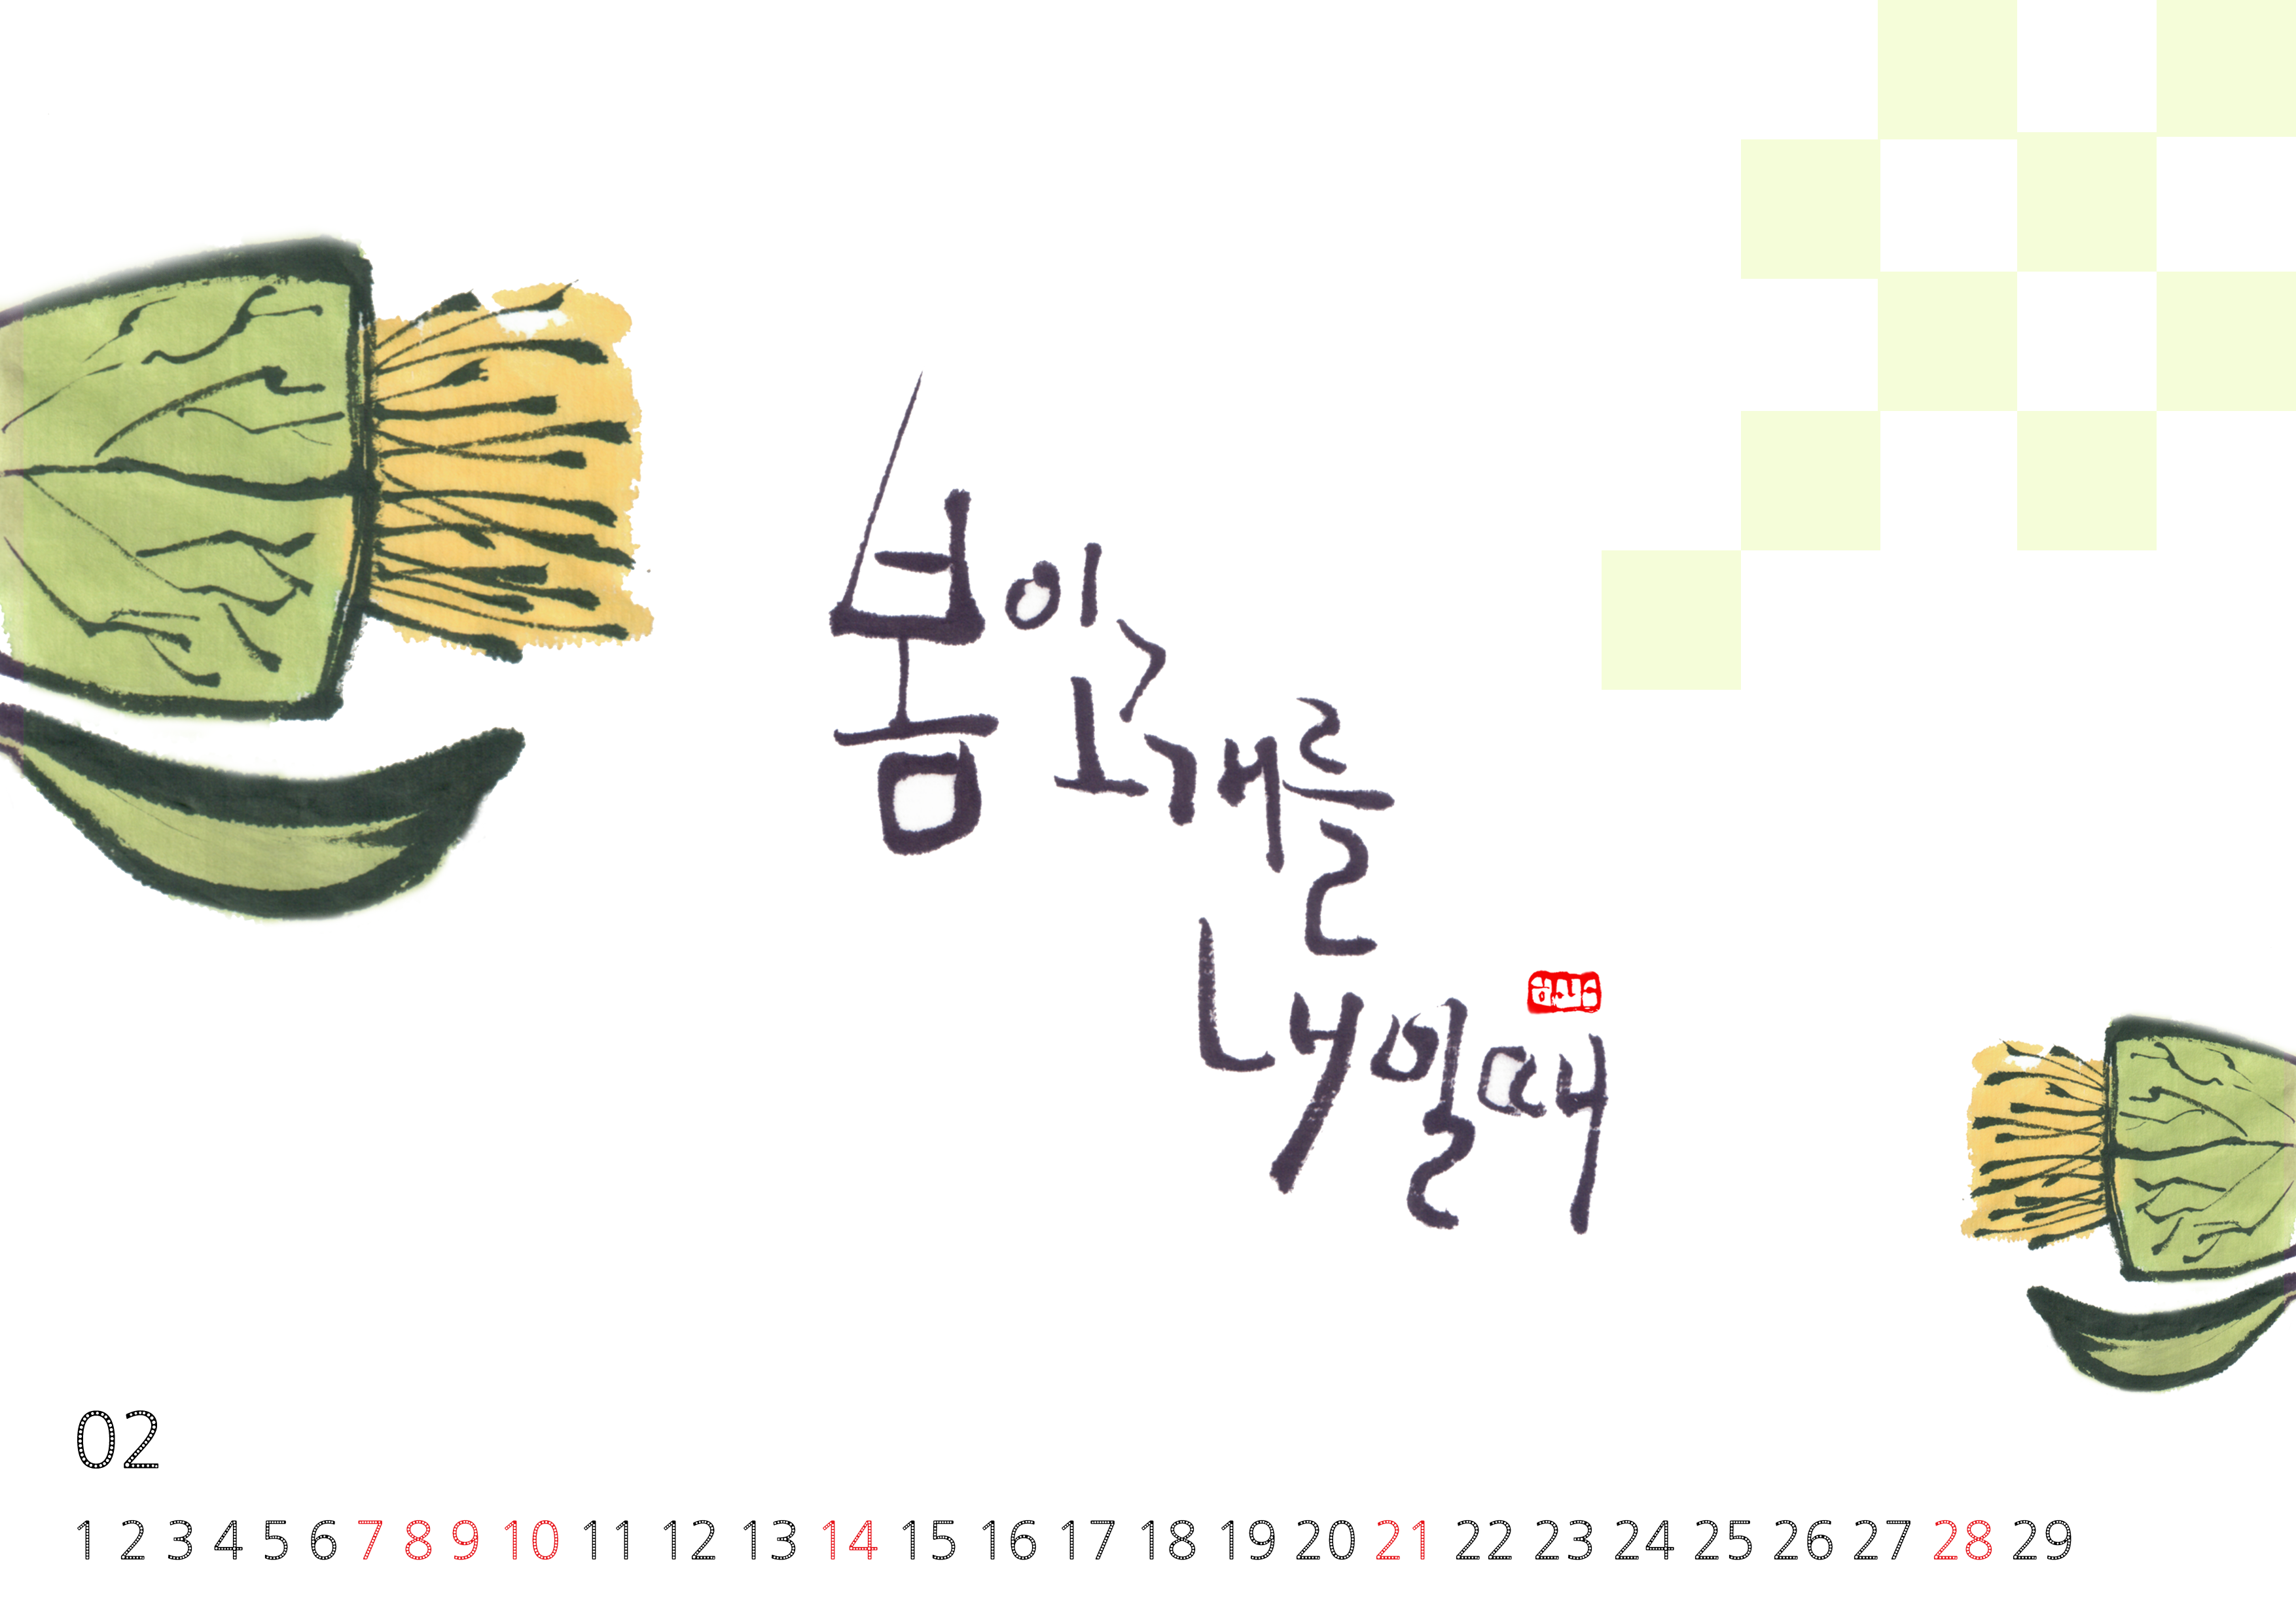 봄이
고개를
내밀때
02
1 2 3 4 5 6 7 8 9 10 11 12 13 14 15 16 17 18 19 20 21 22 23 24 25 26 27 28 29